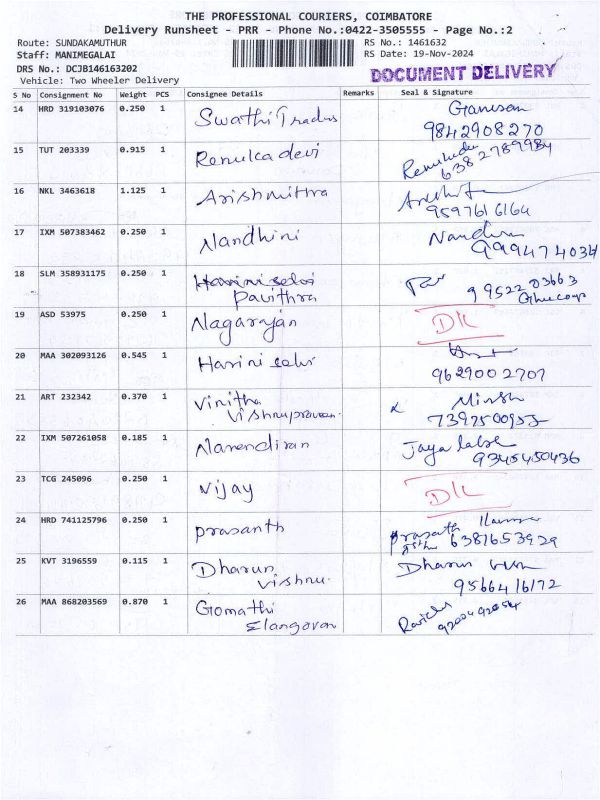 THE PROFESSIONAL COURIERS, COIMBATORE
Delivery Runsheet - PRR - Phone No.:0422-3505555 - Page No.:2
Route: SUNDAKAMUTHUR RS No.: 1461632
Staff: MANIMEGALAI RS Date: 19-Nov-2024
DRS No.: DCJB146163202 DOCUMENT DELIVERY
Vehicle: Two Wheeler Delivery
S No Consignment No Weight PCS Consignee Details Remarks Seal & Signature
14 HRD 319103076 0.250 1 Swathi Traders Ganesan
9842908270
15 TUT 203339 0.915 1 Renulcadevi
6382789984
16 NKL 3463618 1.125 1 Arishmithra
9597616164
17 IXM 507383462 0.250 1 Nandhini
9994774034
18 SLM 358931175 0.250 1 Harini selvi
Pavithra 99522 03663
19 ASD 53975 0.250 1 Nagarajan DL
20 MAA 302093126 0.545 1 Harini selvi
9629002707
21 ART 232342 0.370 1 Vinitha
Vishnupraveen.
22 IXM 507261058 0.185 1 Narendiran
9345450436
23 TCG 245096 0.250 1 Vijay DL
24 HRD 741125796 0.250 1 prasanth prasath
6381653929
25 KVT 3196559 0.115 1 Dharun Dharun
Vishnu. 9566416172
26 MAA 868203569 0.870 1 Gomathi
Elangovan